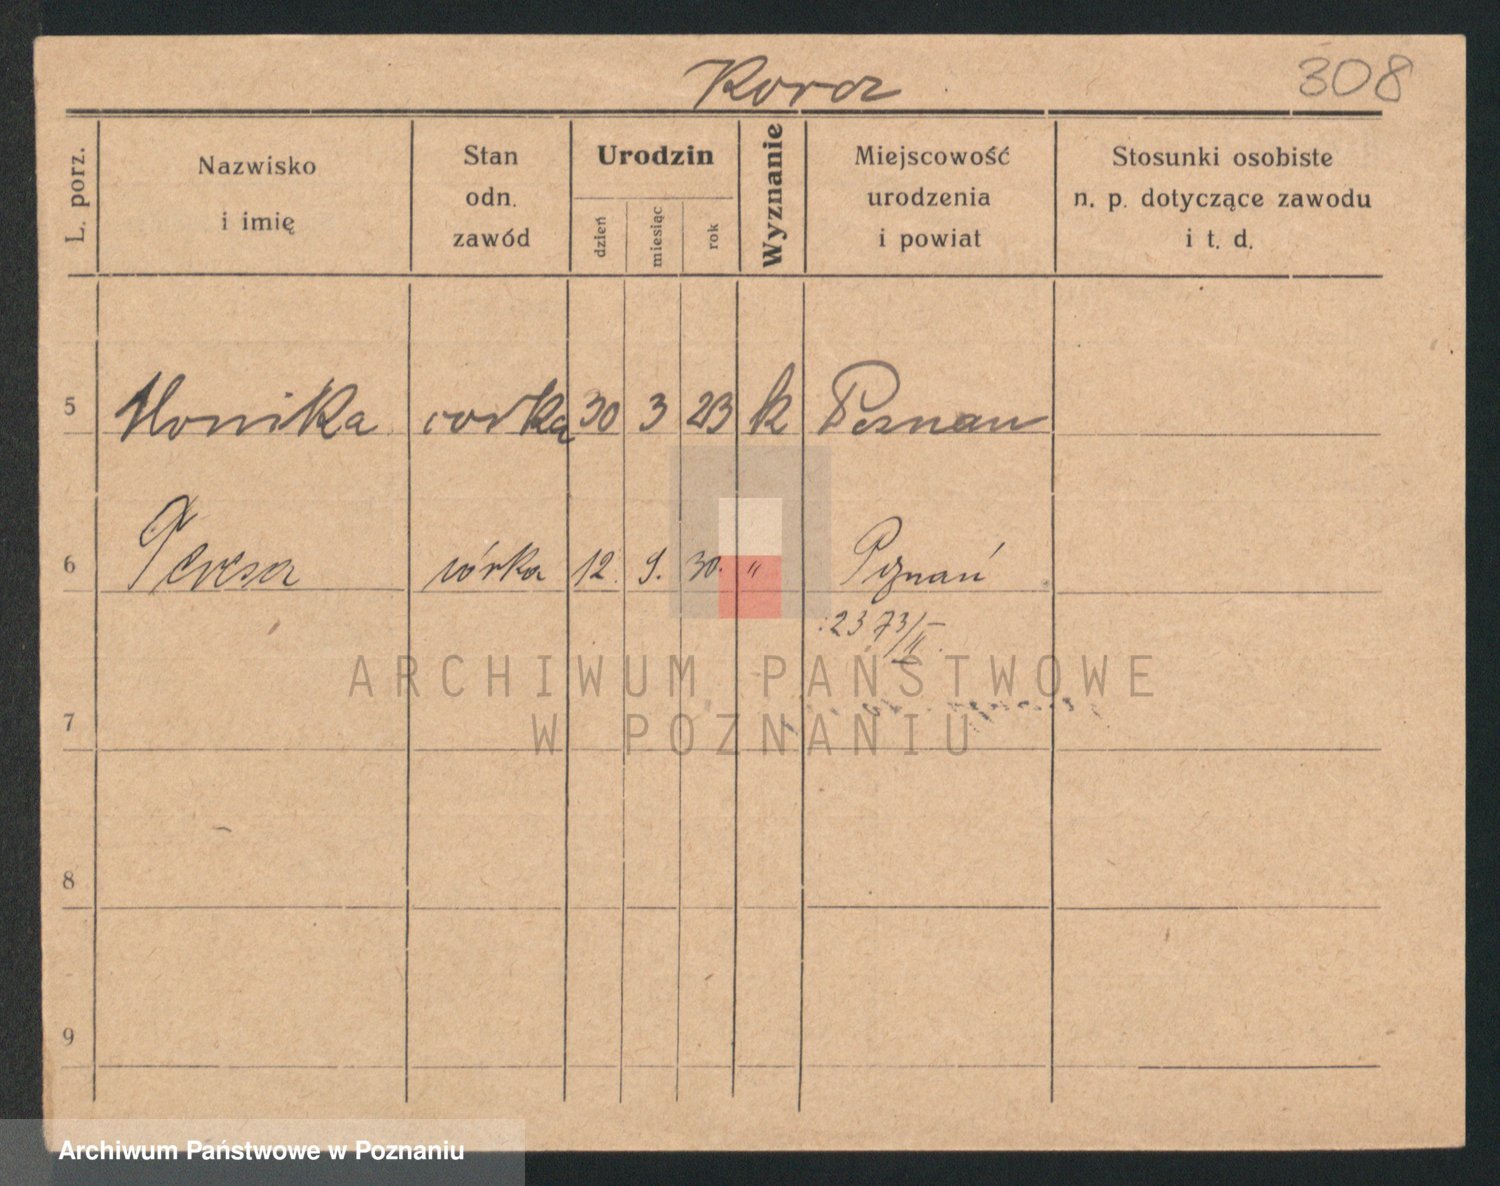 Koracz
308
L. porz.
Nazwisko
i imię
Stan
odn.
zawód
Urodzin
dzień
miesiąc
rok
Wyznanie
Miejscowość
urodzenia
i powiat
Stosunki osobiste
n. p. dotyczące zawodu
i t. d.
5 Monika corka 30 3 23 k Poznan
6 Teresa córka 12. 9. 30. " Poznań
2373/II
ARCHIWUM PAŃSTWOWE
W POZNANIU
7
8
9
Archiwum Państwowe w Poznaniu